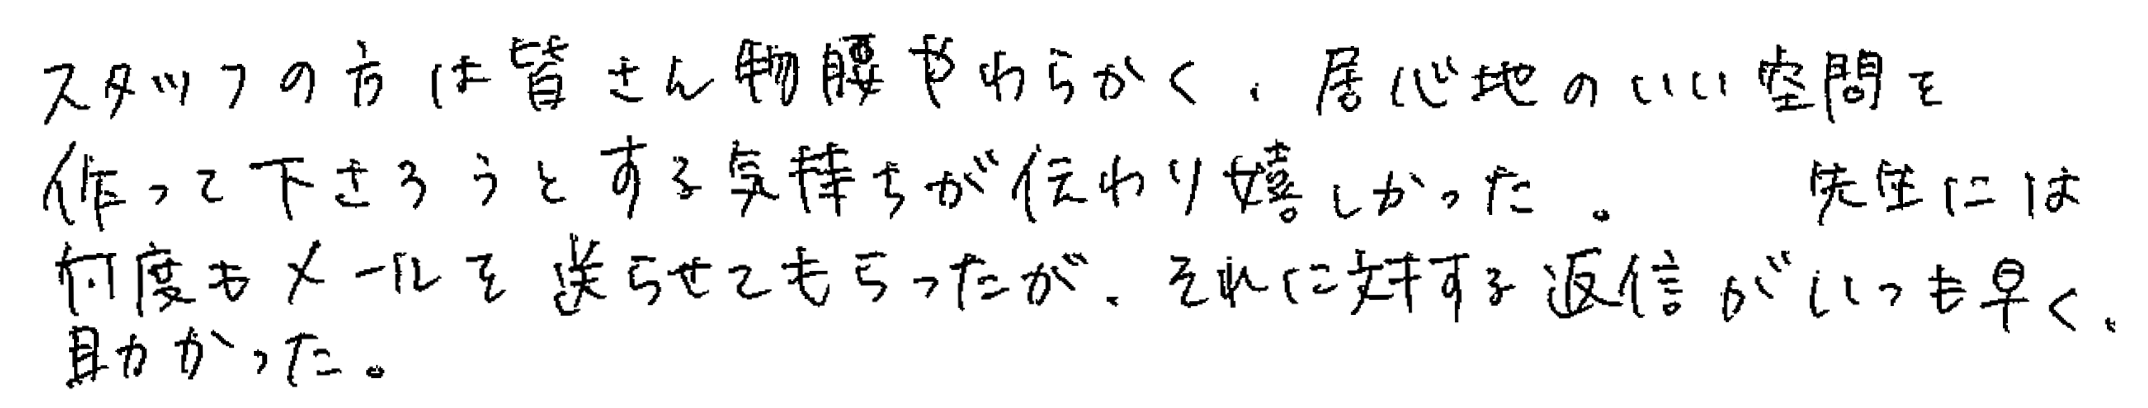 スタッフの方は皆さん物腰やわらかく、居心地のいい空間を
作って下さろうとする気持ちが伝わり嬉しかった。 先生には
何度もメールを送らせてもらったが、それに対する返信がいつも早く、
助かった。